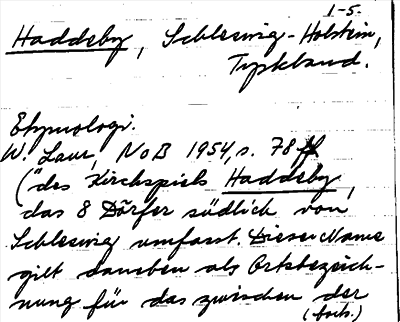 1-5.
Haddeby, Schleswig-Holstein,
Tyskland.
Etymologi.
W. Laur, NoB 1954, s. 78 ff
("des Kirchspiels Haddeby,
das 8 Dörfer südlich von
Schleswig umfasst. Dieser Name
gilt daneben als Ortsbezeich-
nung für das zwischen der
(forts.)